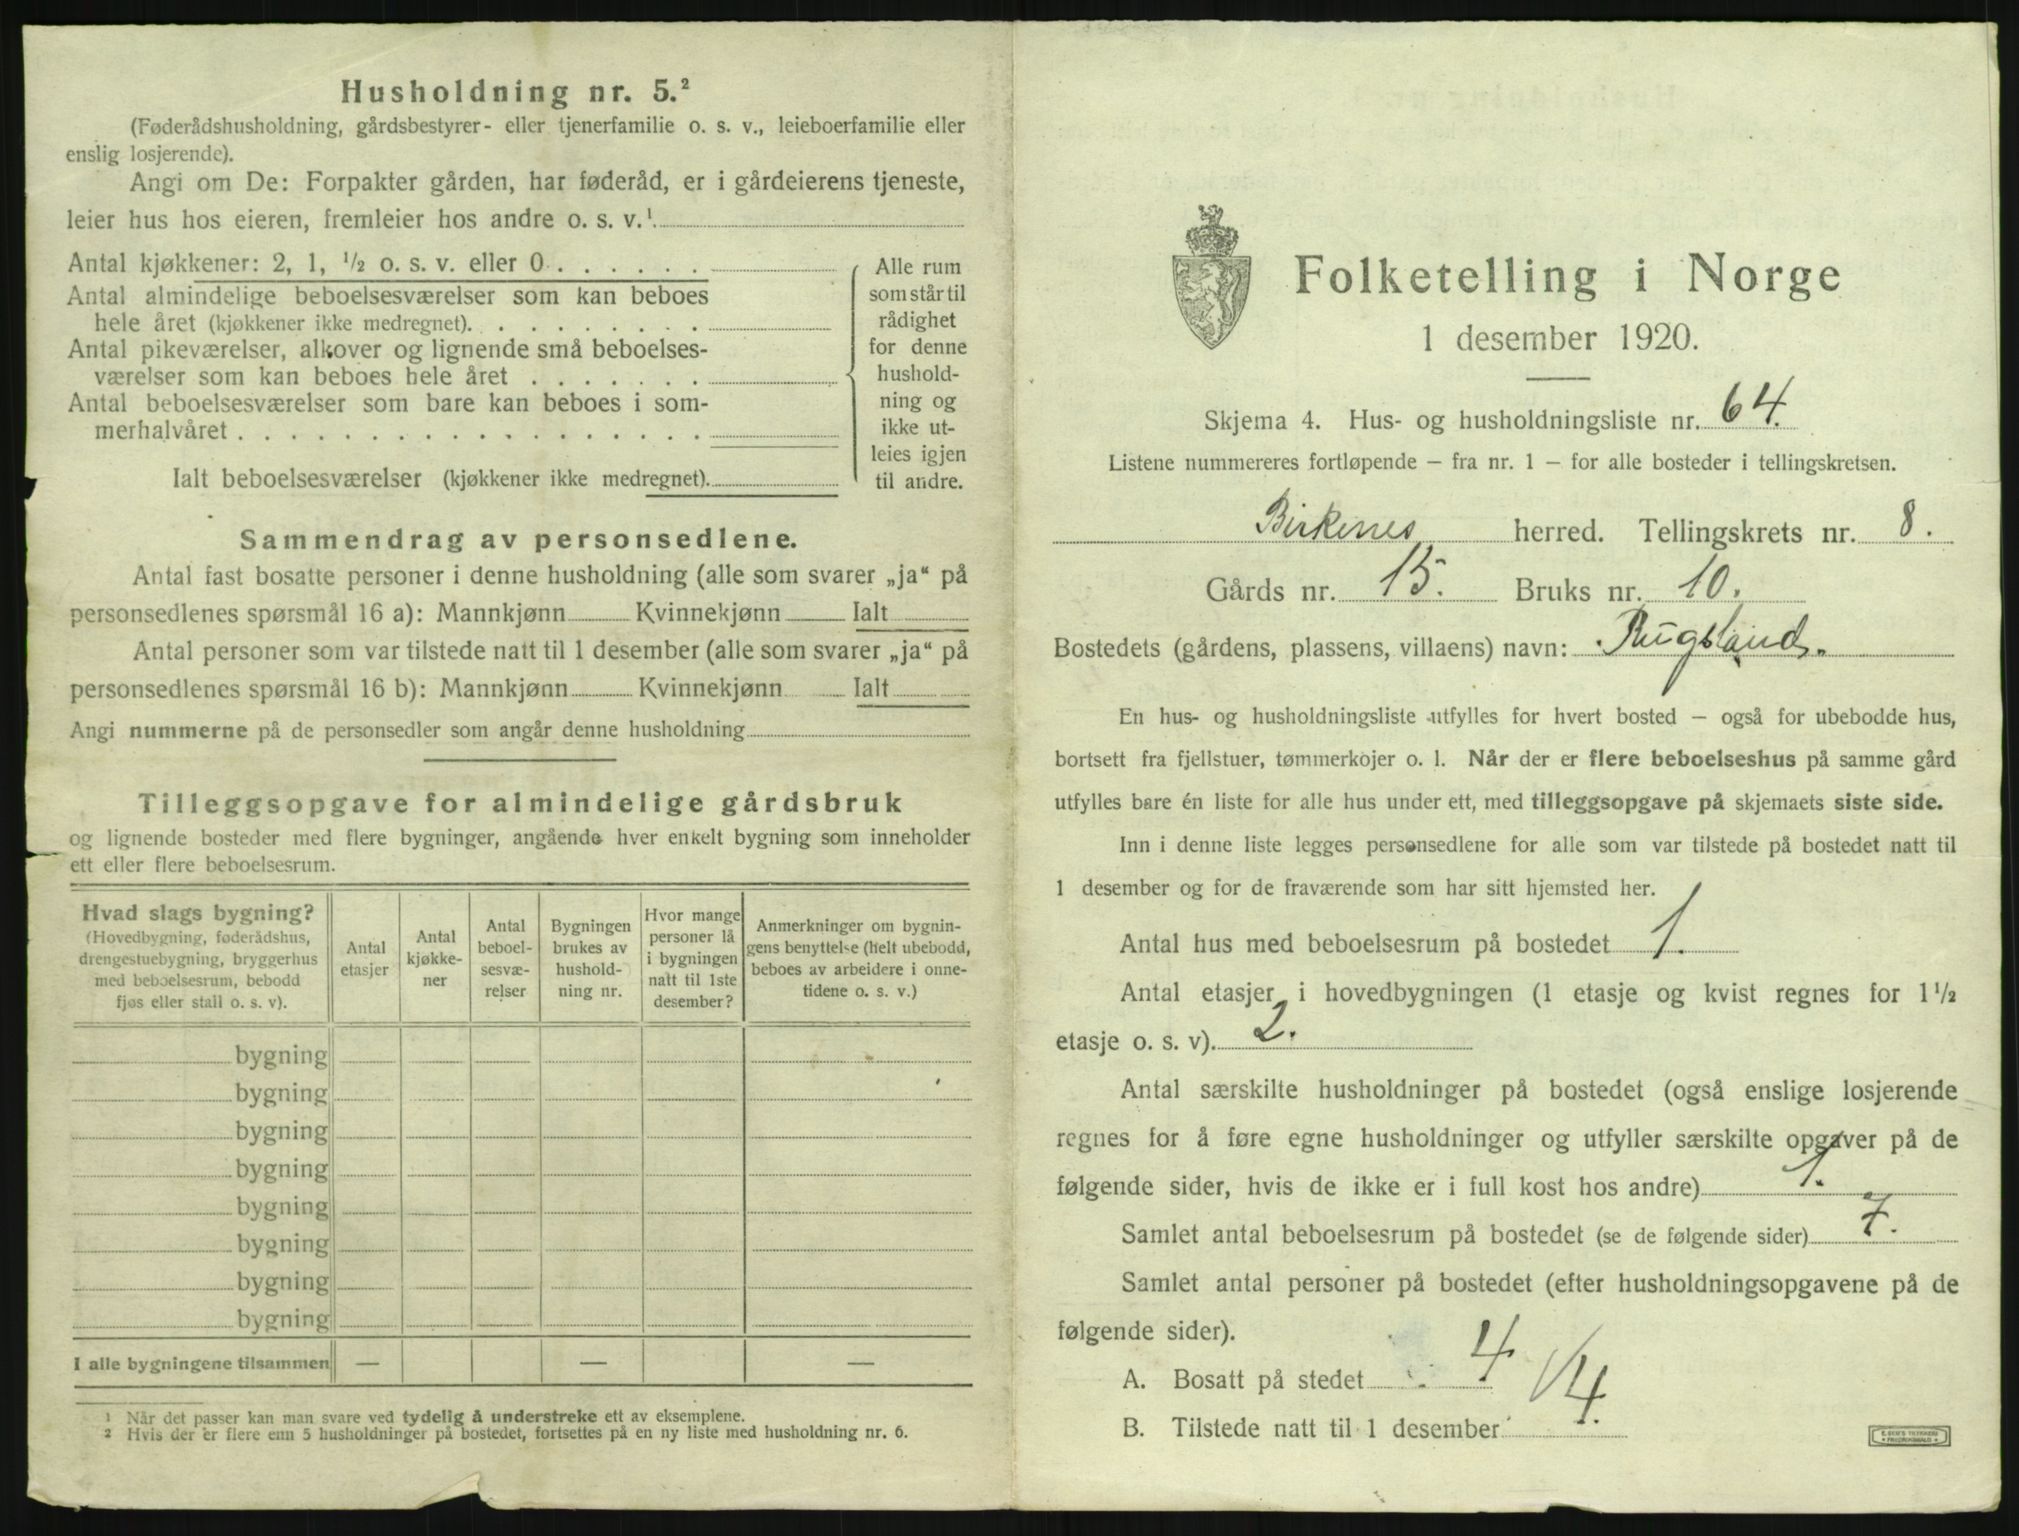 Husholdning nr. 5.²
(Føderådshusholdning, gårdsbestyrer- eller tjenerfamilie o. s. v., leieboerfamilie eller
enslig losjerende).
Angi om De: Forpakter gården, har føderåd, er i gårdeierens tjeneste,
leier hus hos eieren, fremleier hos andre o. s. v.¹
Antal kjøkkener: 2, 1, ½ o. s. v. eller 0 . . . . . .
Antal almindelige beboelsesværelser som kan beboes
hele året (kjøkkener ikke medregnet). . . . . . . . .
Antal pikeværelser, alkover og lignende små beboelses-
værelser som kan beboes hele året . . . . . . .
Antal beboelsesværelser som bare kan beboes i som-
merhalvåret . . . . . . . . . . . . . . . . . .
Ialt beboelsesværelser (kjøkkener ikke medregnet).
Alle rum
som står til
rådighet
for denne
hushold-
ning og
ikke ut-
leies igjen
til andre.
Sammendrag av personsedlene.
Antal fast bosatte personer i denne husholdning (alle som svarer „ja“ på
personsedlenes spørsmål 16 a): Mannkjønn Kvinnekjønn Ialt
Antal personer som var tilstede natt til 1 desember (alle som svarer „ja“ på
personsedlenes spørsmål 16 b): Mannkjønn Kvinnekjønn Ialt
Angi nummerne på de personsedler som angår denne husholdning
Tilleggsopgave for almindelige gårdsbruk
og lignende bosteder med flere bygninger, angående hver enkelt bygning som inneholder
ett eller flere beboelsesrum.
Hvad slags bygning?
(Hovedbygning, føderådshus,
drengestuebygning, bryggerhus
med beboelsesrum, bebodd
fjøs eller stall o. s. v).
Antal
etasjer
Antal
kjøkke-
ner
Antal
beboel-
sesvæ-
relser
Bygningen
brukes av
hushold-
ning nr.
Hvor mange
personer lå
i bygningen
natt til 1ste
desember?
Anmerkninger om bygnin-
gens benyttelse (helt ubebodd,
beboes av arbeidere i onne-
tidene o. s. v.)
bygning
bygning
bygning
bygning
bygning
bygning
bygning
bygning
I alle bygningene tilsammen — — —
1 Når det passer kan man svare ved tydelig å understreke ett av eksemplene.
2 Hvis der er flere enn 5 husholdninger på bostedet, fortsettes på en ny liste med husholdning nr. 6.
Folketelling i Norge
1 desember 1920.
Skjema 4. Hus- og husholdningsliste nr. 64.
Listene nummereres fortløpende – fra nr. 1 – for alle bosteder i tellingskretsen.
Birkenes herred. Tellingskrets nr. 8.
Gårds nr. 15. Bruks nr. 10.
Bostedets (gårdens, plassens, villaens) navn: Rugsland.
En hus- og husholdningsliste utfylles for hvert bosted – også for ubebodde hus,
bortsett fra fjellstuer, tømmerkojer o. l. Når der er flere beboelseshus på samme gård
utfylles bare én liste for alle hus under ett, med tilleggsopgave på skjemaets siste side.
Inn i denne liste legges personsedlene for alle som var tilstede på bostedet natt til
1 desember og for de fraværende som har sitt hjemsted her.
Antal hus med beboelsesrum på bostedet 1.
Antal etasjer i hovedbygningen (1 etasje og kvist regnes for 1½
etasje o. s. v). 2.
Antal særskilte husholdninger på bostedet (også enslige losjerende
regnes for å føre egne husholdninger og utfyller særskilte opgaver på de
følgende sider, hvis de ikke er i full kost hos andre) 1.
Samlet antal beboelsesrum på bostedet (se de følgende sider) 7.
Samlet antal personer på bostedet (efter husholdningsopgavene på de
følgende sider).
A. Bosatt på stedet 4
B. Tilstede natt til 1 desember 4.